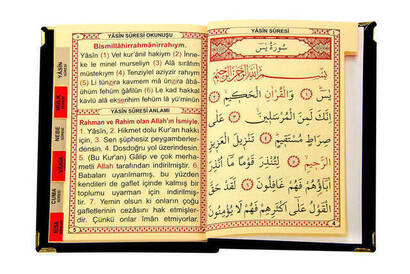 YÂSİN SÛRESİ OKUNUŞU
Bismillâhirrahmânirrahıym.
Yâsîn (1) Vel kur'ânil hakiym (2) İnne-
ke le minel murseliyn (3) Alâ sırâtın
müstekıym (4) Tenziylel aziyzir rahıym
(5) Li tünzira kavmen mâ ünzira âbâü-
ühüm fehüm gâfilûn (6) Le kad hakkal
kavlü alâ ekserihim fehüm lâ yu'minûn
YÂSİN SÛRESİ ANLAMI
Rahman ve Rahim olan Allah'ın İsmiyle.
1. Yâsîn, 2. Hikmet dolu Kur'an hakkı
için, 3. Sen şüphesiz peygamberler-
densin. 4. Dosdoğru yol üzerindesin.
5. (Bu Kur'an) Gâlip ve çok merha-
metli Allah tarafından indirilmiştir. 6.
Babaları uyarılmamış, bu yüzden
kendileri de gaflet içinde kalmış bir
toplumu uyarman için indirilmiştir.
7. Yemin olsun ki onların çoğu
gafletlerinin cezasını hak etmişler-
dir. Çünkü onlar İman etmiyorlar.
5
YÂSİN
MÜLK
NEBE
VÂKIA
CUMA
YÂSİN SÛRESİ
سُورَةُ يٰسٓ
بِسْمِ اللّٰهِ الرَّحْمٰنِ الرَّحٖيمِ
يٰسٓ ﴿١﴾ وَالْقُرْاٰنِ الْحَكٖيمِ ﴿٢﴾
اِنَّكَ لَمِنَ الْمُرْسَلٖينَ ﴿٣﴾ عَلٰى
صِرَاطٍ مُسْتَقٖيمٍ ﴿٤﴾ تَنْزٖيلَ الْعَزٖيزِ
الرَّحٖيمِ ﴿٥﴾ لِتُنْذِرَ قَوْمًا مَٓا اُنْذِرَ
اٰبَٓاؤُهُمْ فَهُمْ غَافِلُونَ ﴿٦﴾ لَقَدْ حَقَّ
الْقَوْلُ عَلٰٓى اَكْثَرِهِمْ فَهُمْ لَا يُؤْمِنُونَ
4